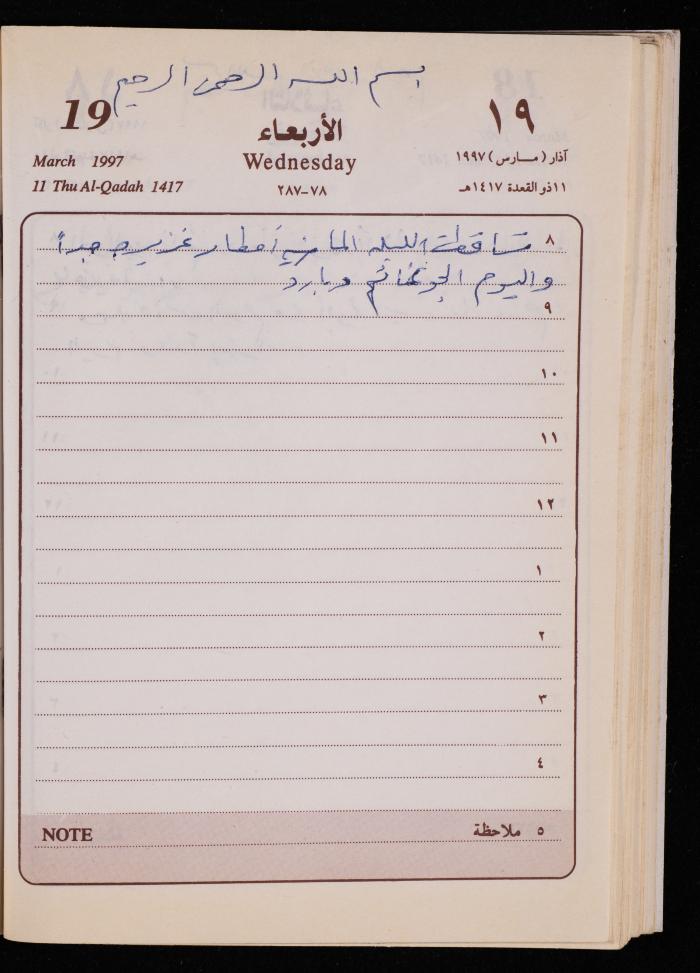 بسم الله الرحمن الرحيم
19
١٩
الأربعاء
March 1997
Wednesday
آذار (مارس) ١٩٩٧
11 Thu Al-Qadah 1417
٢٨٧-٧٨
١١ ذو القعدة ١٤١٧هـ
٨ تساقطت الليله الماضيه أمطار غزيره جداً
واليوم الجو غائم وبارد
٩
١٠
١١
١٢
١
٢
٣
٤
NOTE
٥ ملاحظة